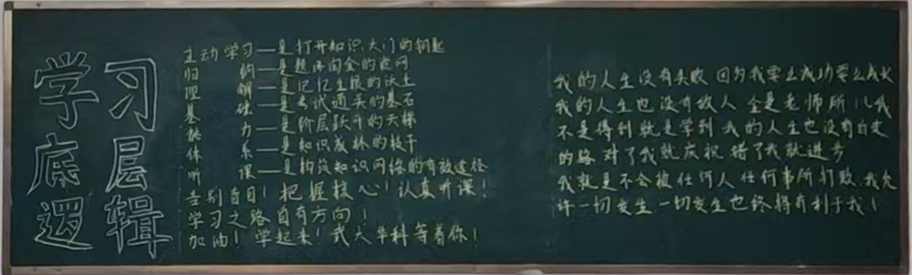 学习
底层
逻辑
主动学习—是打开知识大门的钥匙
归纳—是题海淘金的密网
理解—是记忆生根的沃土
基础—是考试通关的基石
能力—是阶层跃升的天梯
体系—是知识成林的枝干
听课—是构筑知识网络的有效途径
告别盲目！把握核心！认真听课！
学习之路自有方向！
加油！学起来！我大华科等着你！
我的人生没有失败 因为我要么成功要么成长
我的人生也没有敌人 全是老师所以我
不是得到就是学到 我的人生也没有白走
的路 对了我就庆祝 错了我就进步
我就是不会被任何人任何事所打败 我允
许一切发生 一切发生也终将有利于我！